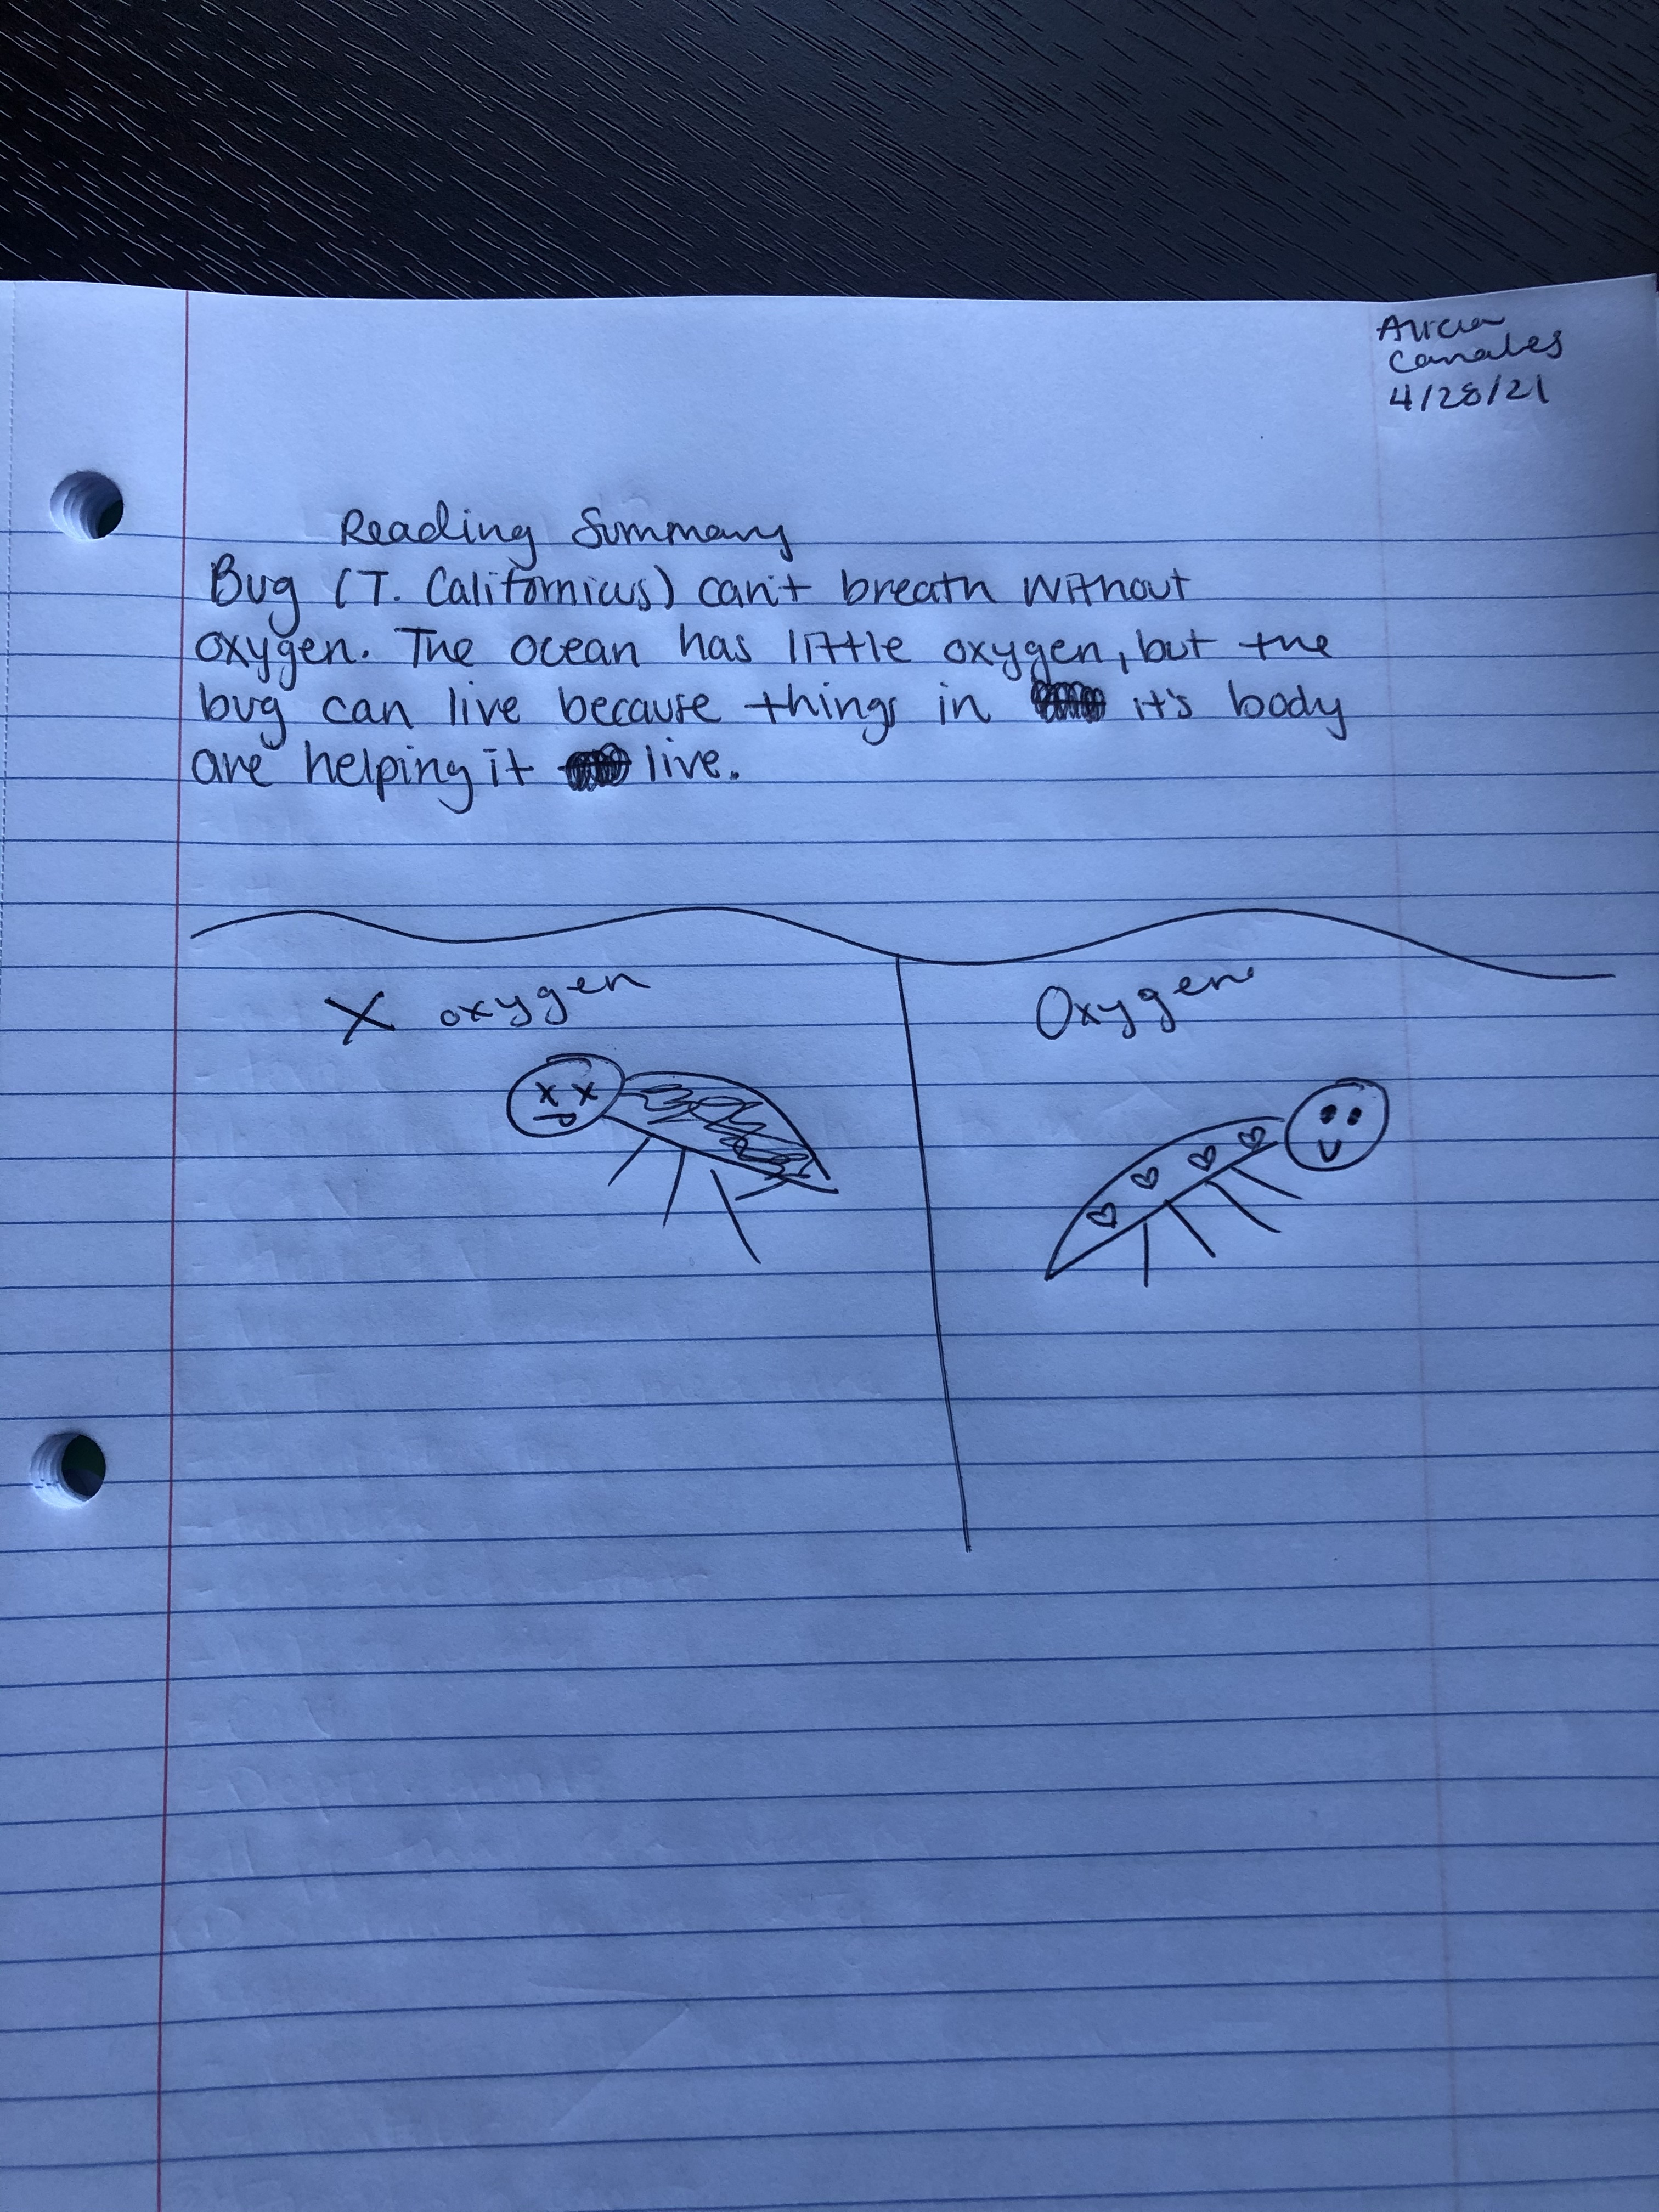 Alicia
Canales
4/28/21
Reading Summary
Bug (T. Californicus) can't breath without
oxygen. The ocean has little oxygen, but the
bug can live because things in it's body
are helping it live.
X oxygen
Oxygen